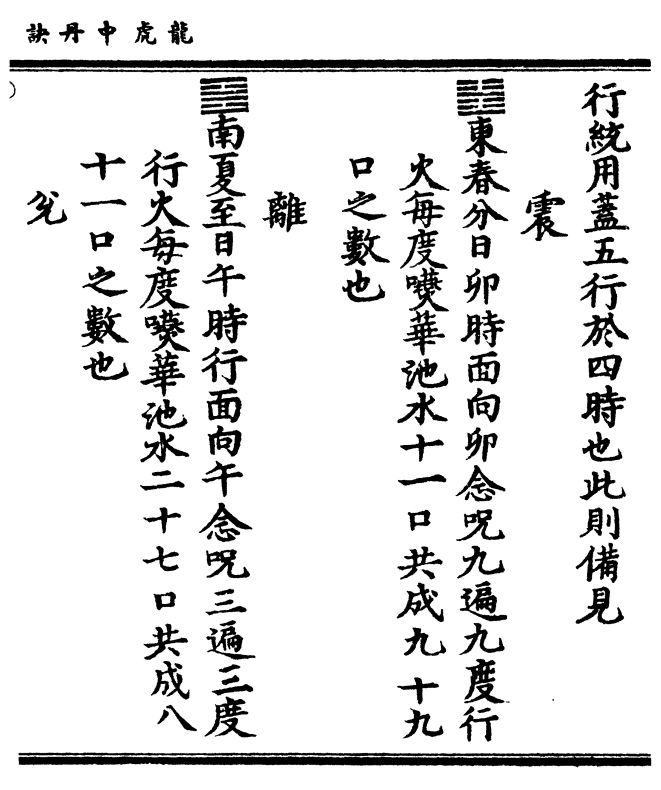 龍虎中丹訣
行統用蓋五行於四時也此則備見
震
東春分日卯時面向卯念呪九遍九度行
火每度嚥華池水十一口共成九十九
口之數也
離
南夏至日午時行面向午念呪三遍三度
行火每度嚥華池水二十七口共成八
十一口之數也
兊